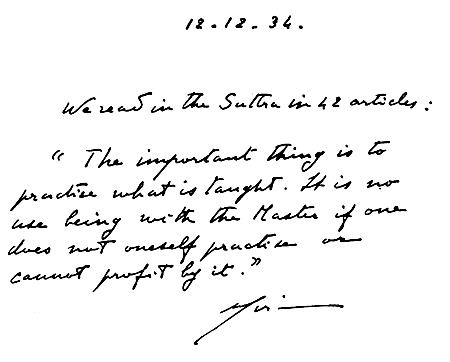 12-12-34.
We read in the Suttra in 42 articles:
" The important thing is to
practise what is taught. It is no
use being with the Master if one
does not oneself practise or
cannot profit by it."